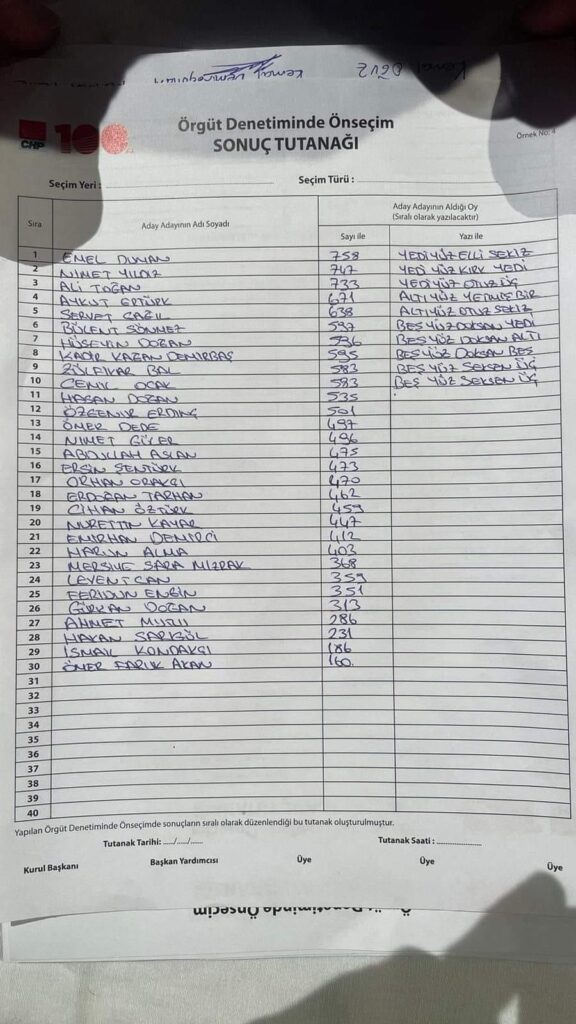 Kemal OĞUZ
CHP 100
Örgüt Denetiminde Önseçim
SONUÇ TUTANAĞI
Örnek No: 4
Seçim Yeri :
Seçim Türü :
Sıra
Aday Adayının Adı Soyadı
Aday Adayının Aldığı Oy
(Sıralı olarak yazılacaktır)
Sayı ile
Yazı ile
1 EMEL DUMAN 758 YEDİYÜZ ELLİ SEKİZ
2 NİMET YILDIZ 747 YEDİ YÜZ KIRK YEDİ
3 ALİ TOĞAN 733 YEDİ YÜZ OTUZ ÜÇ
4 AYKUT ERTÜRK 671 ALTI YÜZ YETMİŞ BİR
5 SERVET ÇAĞIL 638 ALTIYÜZ OTUZ SEKİZ
6 BÜLENT SÖNMEZ 597 BEŞ YÜZ DOKSAN YEDİ
7 HÜSEYİN DOĞAN 596 BEŞ YÜZ DOKSAN ALTI
8 KADİR KAĞAN DEMİRBAŞ 595 BEŞ YÜZ DOKSAN BEŞ
9 ZÜLFİKAR BAL 583 BEŞ YÜZ SEKSEN ÜÇ
10 CEMİL OCAK 583 BEŞ YÜZ SEKSEN ÜÇ
11 HASAN DOĞAN 535
12 ÖZGENUR ERDİNÇ 501
13 ÖMER DEDE 497
14 NİMET GÜLER 496
15 ABDULLAH ASLAN 475
16 ERSİN ŞENTÜRK 473
17 ORHAN ORAKÇI 470
18 ERDOĞAN TARHAN 462
19 CİHAN ÖZTÜRK 459
20 NURETTİN KAYAR 447
21 EMİRHAN DEMİRCİ 412
22 HARUN ALMA 403
23 MERSİYE SARA MIZRAK 368
24 LEVENT CAN 359
25 FERİDUN ENGİN 351
26 GÜRKAN DOĞAN 313
27 AHMET MUTLU 286
28 HAKAN SARIGÜL 231
29 İSMAİL KONDAKÇI 186
30 ÖMER FARUK AKAN 160
31
32
33
34
35
36
37
38
39
40
Yapılan Örgüt Denetiminde Önseçimde sonuçların sıralı olarak düzenlendiği bu tutanak oluşturulmuştur.
Tutanak Tarihi: ...../...../......
Tutanak Saati : ....................
Kurul Başkanı
Başkan Yardımcısı
Üye
Üye
Üye
Örgüt Denetiminde Önseçim